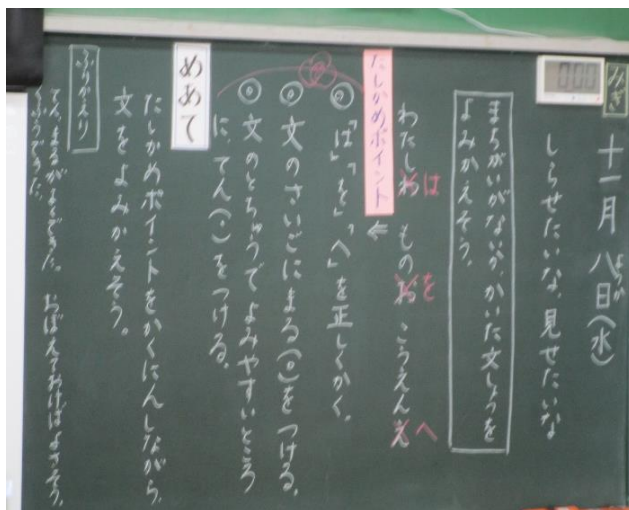 みぎ
十一月八日(水)
ようか
しらせたいな、見せたいな
まちがいがないか、かいた文しょうを
よみかえそう。
わたしわ ものお こうえんえ
は を へ
たしかめポイント
◎「は」「を」「へ」を正しくかく。
◎文のさいごにまる(。)をつける。
◎文のとちゅうでよみやすいところ
に、てん(、)をつける。
めあて
たしかめポイントをかくにんしながら、
文をよみかえそう。
ふりかえり
てん、まるがよくできた。 おぼえておけばよさそう。